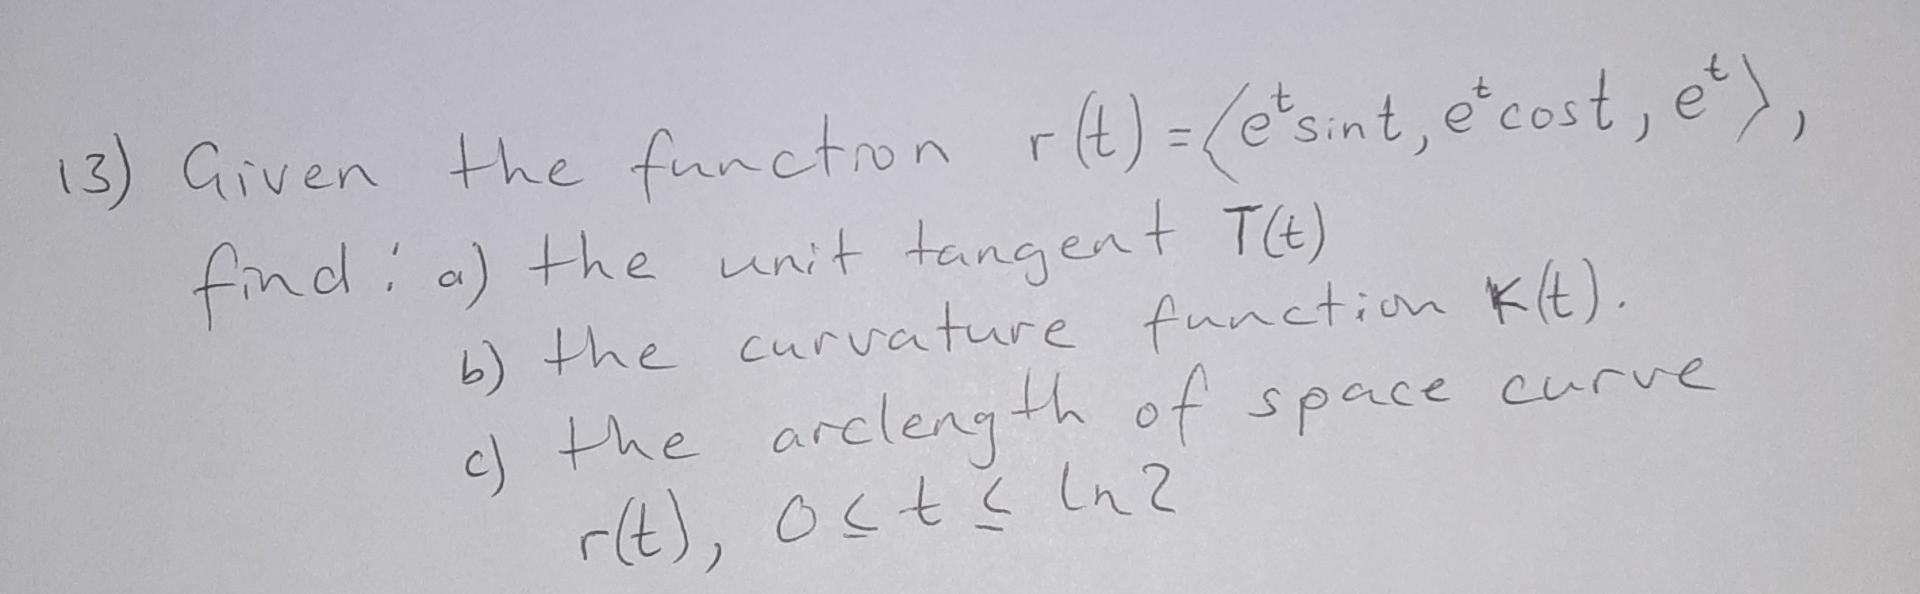 13) Given the function r(t) = ⟨eᵗsint, eᵗcost, eᵗ⟩,
find: a) the unit tangent T(t)
b) the curvature function K(t).
c) the arclength of space curve
r(t), 0 ≤ t ≤ ln2